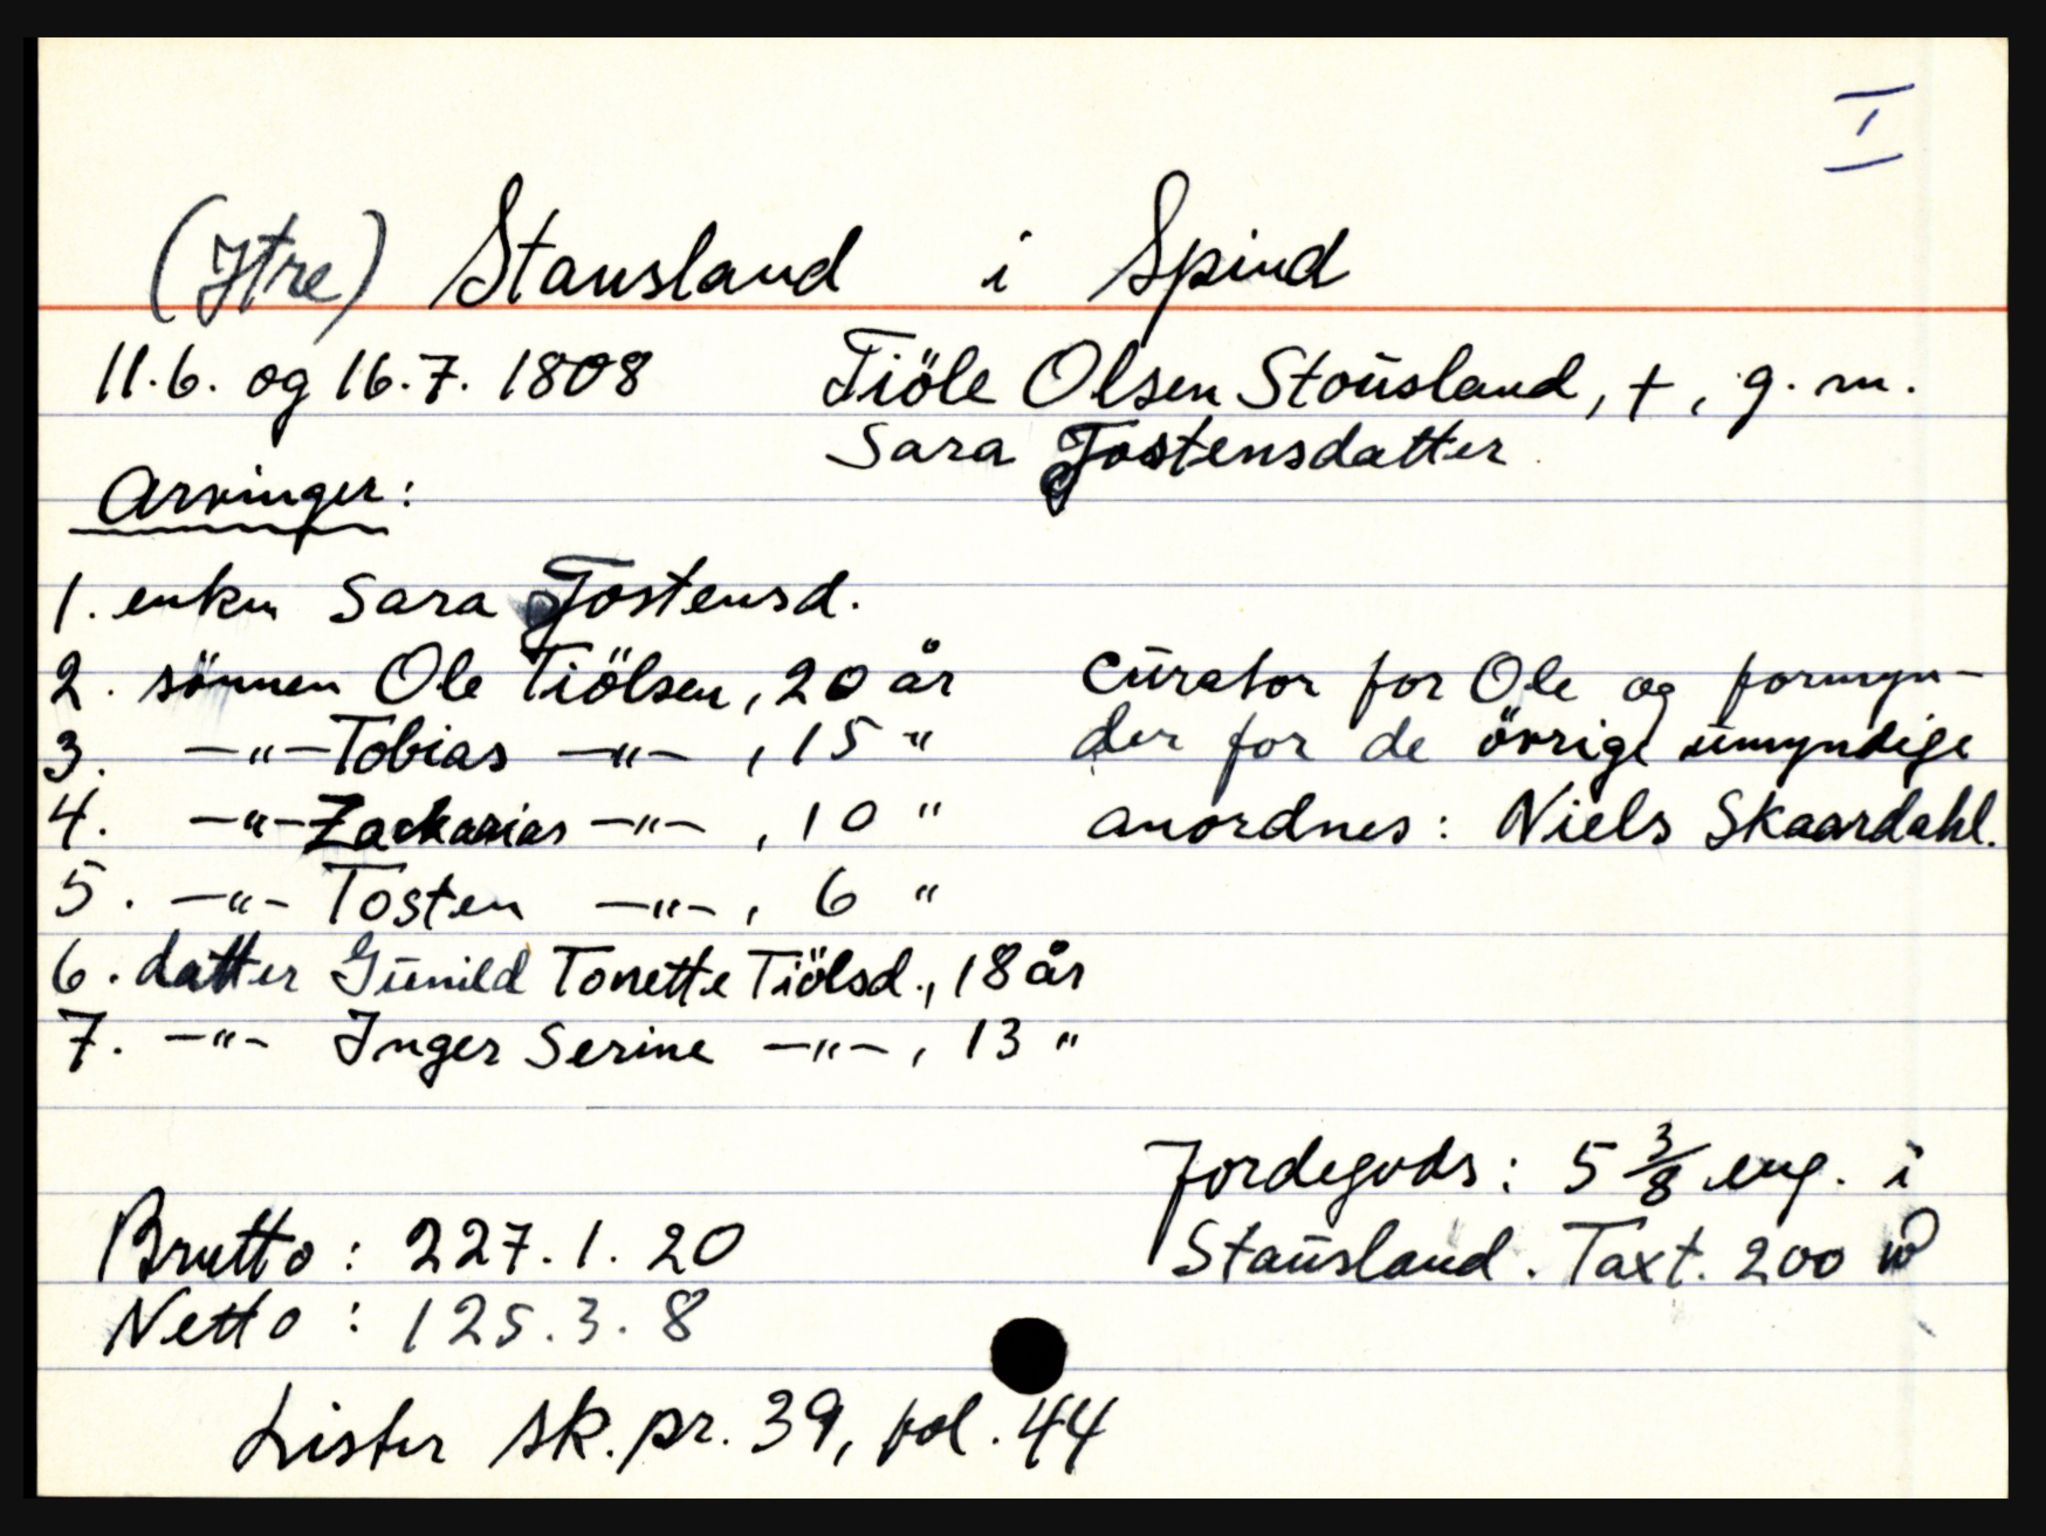 I
(Ytre) Stausland i Spind
11.6. og 16.7. 1808 Tiöle Olsen Stoŭsland, +, g. m.
Sara Tostensdatter
Arvinger:
1. enken Sara Tostensd.
2. sönnen Ole Tiölsen, 20 år Cŭrator for Ole og formyn-
3. —"— Tobias —"—, 15 " der for de övrige ŭmyndige
4. —"— Zackarias —"—, 10 " anordnes: Niels Skaardahl.
5. —"— Tosten —"—, 6 "
6. datter Gŭnild Tonette Tiölsd., 18 år
7. —"— Inger Serine —"—, 13 "
Jordegods: 5 3/8 eng. i
Brutto: 227. 1. 20 Staŭsland. Taxt. 200
Netto: 125. 3. 8
Lister sk. pr. 39, fol. 44